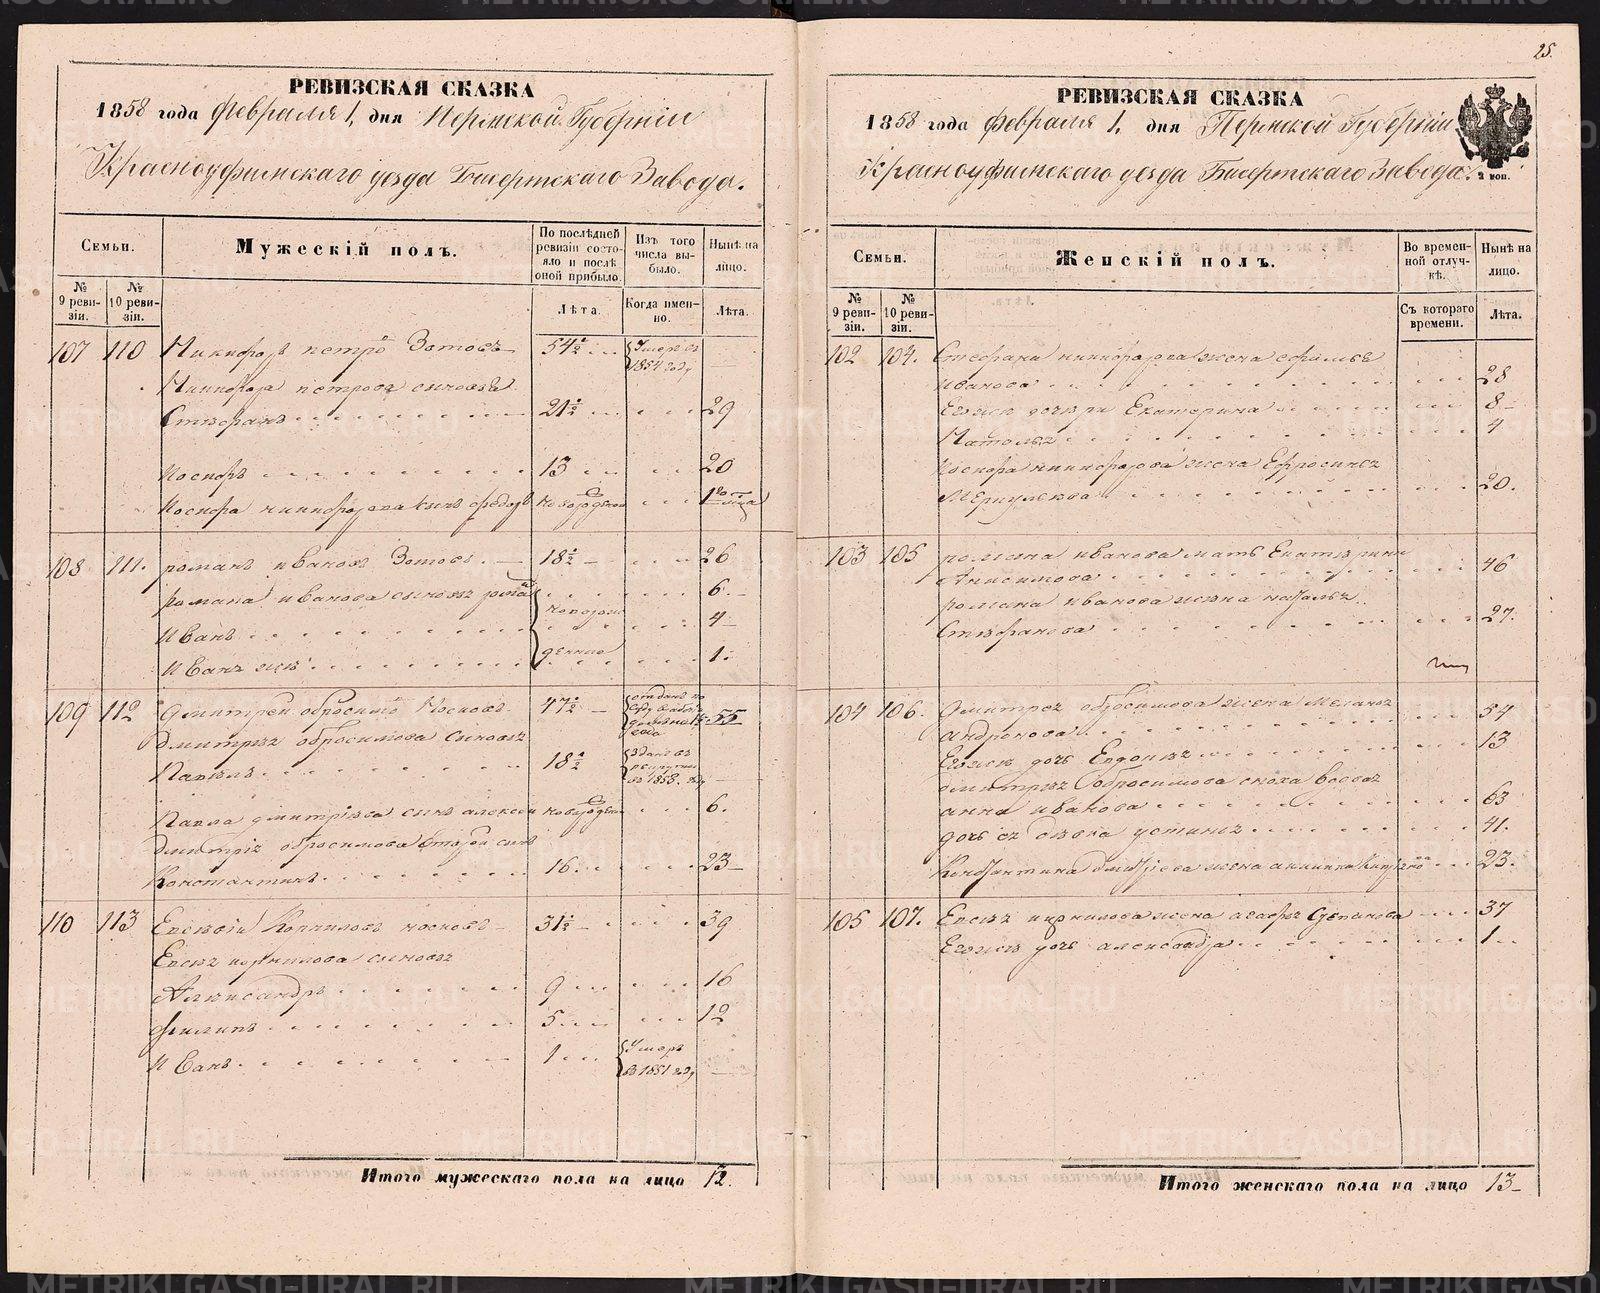 РЕВИЗСКАЯ СКАЗКА
1858 года Февраля 1, дня Пермской Губернии
Красноуфимскаго уезда Бисертскаго Завода.
Семьи.
Мужескій полъ.
По послѣдней ревизіи состояло и послѣ оной прибыло.
Изъ того числа выбыло.
Нынѣ на лицо.
№ 9 ревизіи.
№ 10 ревизіи.
Лѣта.
Когда именно.
Лѣта.
107 110 Никифоръ петро Зотовъ 54½ Умеръ въ 1854 году
Никифора петрова сыновья
Степранъ 21½ 29
Иосифъ 13 20
Иосифа никифорова сынъ федоръ новорожден 1
108 111. романъ ивановъ Зотовъ 18½ 26
романа иванова сыновья 6.
Иванъ новорож 4
Иванъ же денные 1.
109 112 Дмитрей обросимо Носковъ 47½ 55
Дмитрея обросимова сыновья
Павелъ 18½ Зданъ въ рекруты въ 1853 году
Павла дмитріева сынъ алексеи новорожден 6.
Дмитрія обросимова второй сынъ
Константинъ 16. 23
110 113 Евсѣвіи Корниловъ носковъ 31½ 39
Евсея корнилова сыновья
Александръ 9 16
Филипъ 5 12
Иванъ 1 Умеръ въ 1851 году
Итого мужескаго пола на лицо 12.
25.
РЕВИЗСКАЯ СКАЗКА
1858 года Февраля 1, дня Пермской Губерніи
Красноуфимскаго уезда Бисертскаго Завода.
2 коп.
Семьи.
Женскій полъ.
Во временной отлучкѣ.
Нынѣ на лицо.
№ 9 ревизіи.
№ 10 ревизіи.
Съ котораго времени.
Лѣта.
102 104. Стефана никифорова жена
Иванова 28
Егожъ дочери Екатерина 8
Наталья 4
Иосифа никифорова жена Ефросинья
Меркульева 20.
103 105 романа иванова мать Екатерина
Анисимова 46
романа иванова жена наталья
Стефанова 27.
104 106. Дмитрея обросимова жена Меланья
андронова 54
Егожъ дочь Евдокея 13
дмитрея обросимова сноха вдова
анна иванова 63
дочь ея девка устинья 41.
Константина дмитріева жена акилина 23.
105 107. Евсея корнилова жена агафья Степанова 37
Егожъ дочь александра 1
Итого женскаго пола на лицо 13
METRIKI.GASO-URAL.RU